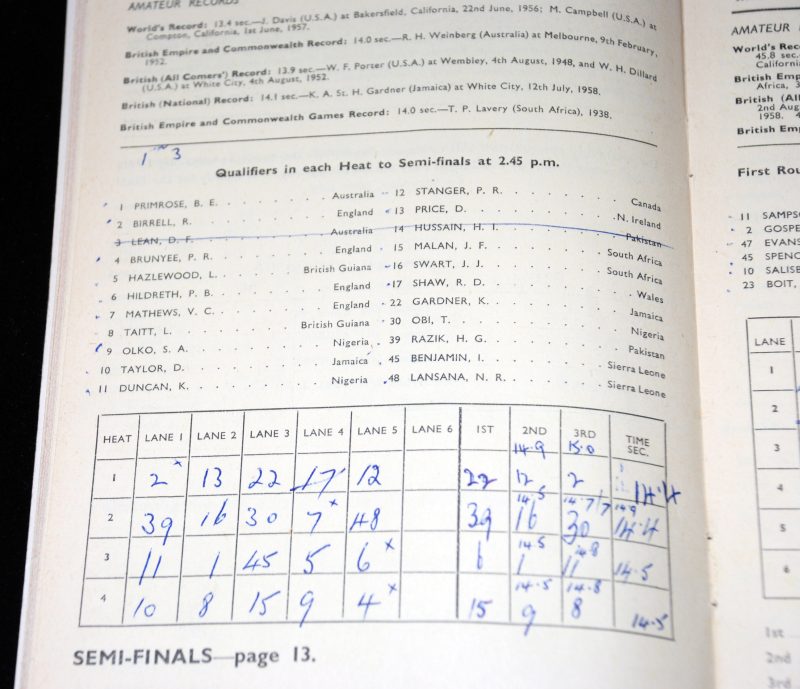 AMATEUR RECORDS
World's Record: 13.4 sec.—J. Davis (U.S.A.) at Bakersfield, California, 22nd June, 1956; M. Campbell (U.S.A.) at
Compton, California, 1st June, 1957.
British Empire and Commonwealth Record: 14.0 sec.—R. H. Weinberg (Australia) at Melbourne, 9th February,
1952.
British (All Comers') Record: 13.9 sec.—W. F. Porter (U.S.A.) at Wembley, 4th August, 1948, and W. H. Dillard
(U.S.A.) at White City, 4th August, 1952.
British (National) Record: 14.1 sec.—K. A. St. H. Gardner (Jamaica) at White City, 12th July, 1958.
British Empire and Commonwealth Games Record: 14.0 sec.—T. P. Lavery (South Africa), 1938.
1 3
Qualifiers in each Heat to Semi-finals at 2.45 p.m.
1 PRIMROSE, B. E. Australia
2 BIRRELL, R. England
3 LEAN, D. F. Australia
4 BRUNYEE, P. R. England
5 HAZLEWOOD, L. British Guiana
6 HILDRETH, P. B. England
7 MATHEWS, V. C. England
8 TAITT, L. British Guiana
9 OLKO, S. A. Nigeria
10 TAYLOR, D. Jamaica
11 DUNCAN, K. Nigeria
12 STANGER, P. R. Canada
13 PRICE, D. N. Ireland
14 HUSSAIN, H. I. Pakistan
15 MALAN, J. F. South Africa
16 SWART, J. J. South Africa
17 SHAW, R. D. Wales
22 GARDNER, K. Jamaica
30 OBI, T. Nigeria
39 RAZIK, H. G. Pakistan
45 BENJAMIN, I. Sierra Leone
48 LANSANA, N. R. Sierra Leone
HEAT LANE 1 LANE 2 LANE 3 LANE 4 LANE 5 LANE 6 1ST 2ND 3RD TIME SEC.
14.9 15.0
1 2x 13 22 17 12 22 12 2 14.4
14.5 14.7 14.9
2 39 16 30 7x 48 39 16 30 14.4
14.5 14.8
3 11 1 45 5 6x 6 1 11 14.5
14.5 14.8
4 10 8 15 9 4x 15 9 8 14.5
SEMI-FINALS—page 13.
AMATEUR
World's Reco
45.8 sec.
California
British Emp
Africa, 3
British (All
2nd Aug
1958. 4
British Emp
First Rou
11 SAMPS
2 GOSPE
47 EVANS
45 SPENC
10 SALISE
23 BOIT,
LANE
1
2
3
4
5
6
1st
2nd
3rd